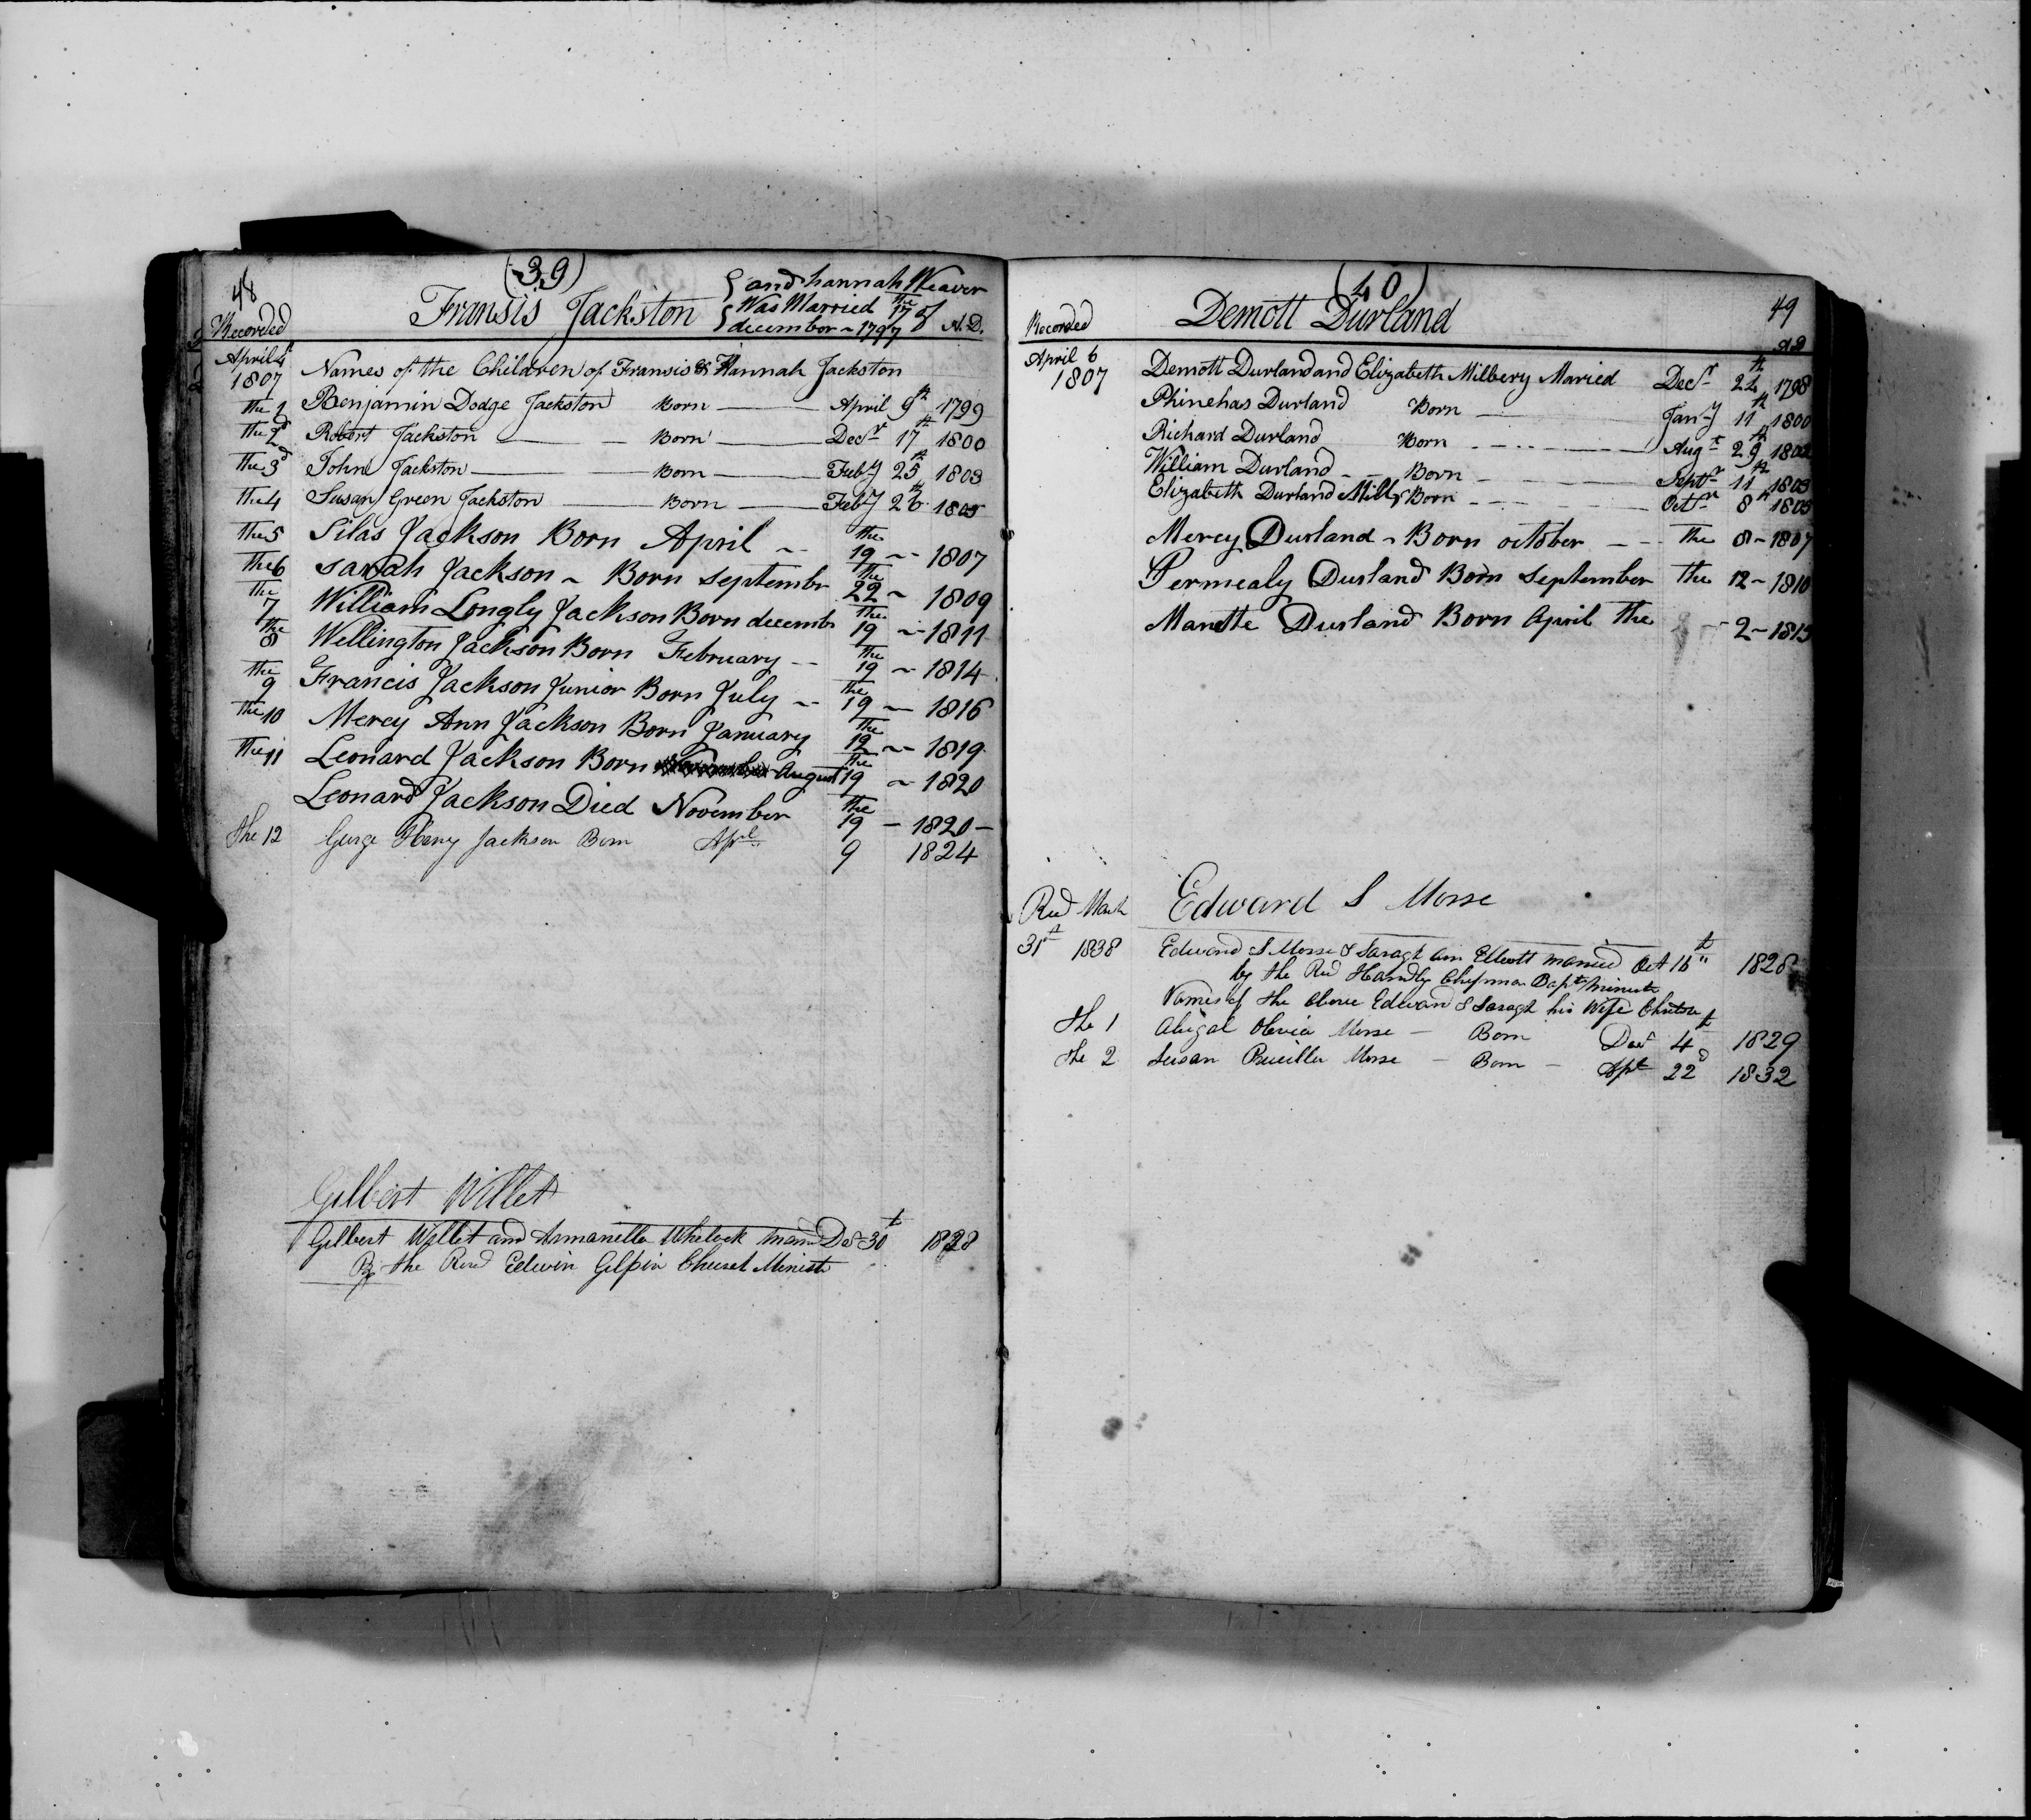 48
(39)
Fransis Jackston { and hannah Weaver
{ Was Married the 17 of
{ december ~ 1797
Recorded A.D.
April 4t Names of the Children of Fransis & Hannah Jackston
1807
the 1 Benjamin Dodge Jackston Born April 9th 1799
the 2d Robert Jackston Born Decr 17th 1800
the 3d John Jackston Born Feby 25th 1803
the 4 Susan Green Jackston Born Feby 26th 1805
the 5 Silas Jackson Born April the 19 ~ 1807
the 6 sarah Jackson ~ Born septembr the 22 ~ 1809
the 7 William Longly Jackson Born decembr the 19 ~ 1811
the 8 Wellington Jackson Born February the 19 ~ 1814
the 9 Francis Jackson Junior Born July the 19 ~ 1816
the 10 Mercy Ann Jackson Born January the 12 ~ 1819
the 11 Leonard Jackson Born August the 19 ~ 1820
Leonard Jackson Died November the 19 - 1820 -
the 12 George Henry Jackson Born Apl 9 1824
Gilbert Willet
Gilbert Willet and Armanella Whelock Decr 30t 1828
By the Revd Edwin Gilpin Church Ministr
(40)
49
Recorded Demott Durland
AD
April 6 Demott Durland and Elizabeth Milbery Maried Decr 24th 1798
1807
Phinehas Durland Born Jany 11th 1800
Richard Durland Born Augt 29th 1802
William Durland Born Septr 11th 1803
Elizabeth Durland Born Octr 8th 1805
Mercy Durland ~ Born october The 8 ~ 1807
Permealy Durland Born September the 12 ~ 1810
Durland Born April the 2 ~ 1813
Edward S Morse
Recd March
31st 1838 Edward S Morse & Saragh Ann married Oct 16th 1828
by the Revd Handly Chipman Bapt Ministr
Names of the above Edward & Saragh his Wife
the 1 Abigal Olevia Morse - Born Decr 4t 1829
the 2 Susan Morse - Born - Apl 22d 1832